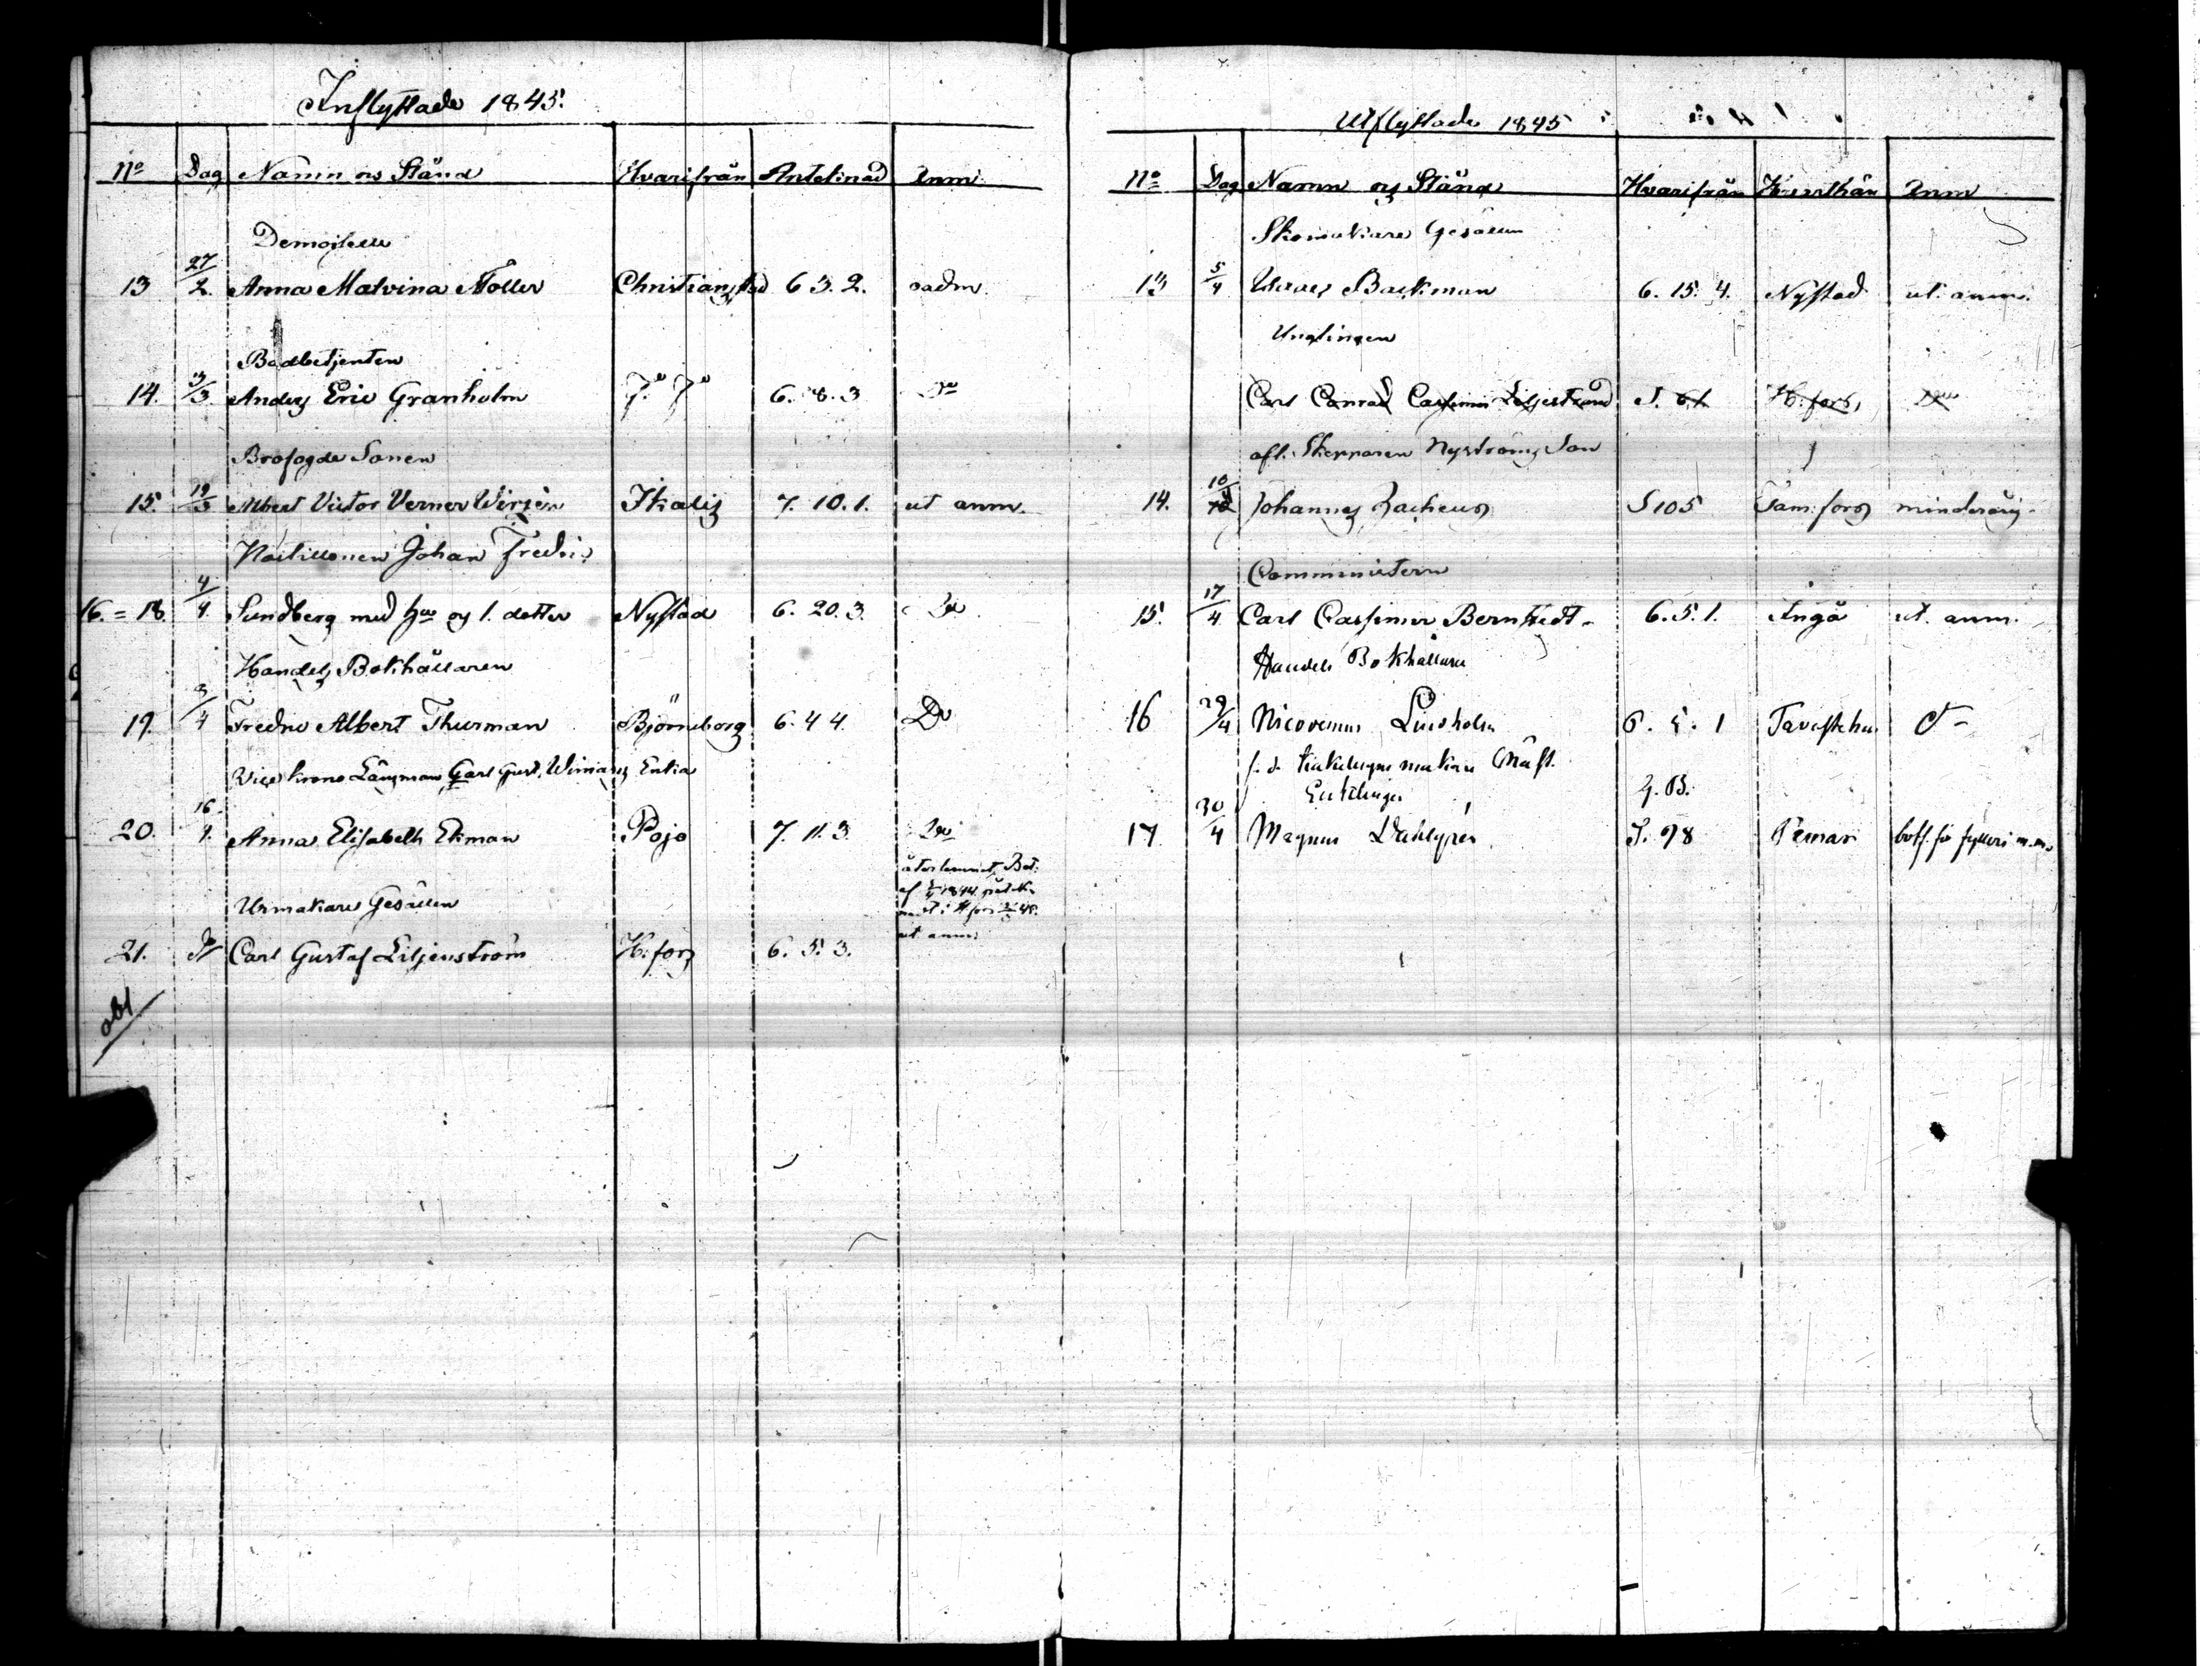 Inflyttade 1845.
No Dag Namn och Stånd Hvarifrån Anteknad Anm.
Demoiselle
13 27/2. Anna Malvina Möller Christianstad 6. 3. 2. oadm.
Bodbetjenten
14. 3/3. Anders Eric Granholm Do Do 6. 8. 3 Do
Brofogde Sonen
15. 19/3 Albert Victor Verner Wirzén Ikalis 7. 10. 1. ut anm.
Postillonen Johan Fredric
16.=18. 4/4. Sundberg med hu och 1. dotter Nystad 6. 20. 3. Do
Handels Bokhållaren
19. 9/4 Fredric Albert Thurman Björneborg 6. 4 4. Do
Vice krono Länsman Carl Gust. Wimans Enka
20. 16/4. Anna Elisabeth Ekman Pojo 7. 11. 3. Do
återlemnat Bet.
af 1844
ut anm:
Urmakare Gesällen
21. Do Carl Gustaf Liljenström H:fors 6. 5. 3.
obs
Utflyttade 1845
No Dag Namn och Stånd Hvarifrån Anm
Skomakare Gesällen
13 5/4 Backman 6. 15. 4. Nystad ut. anm.
Ynglingen
Carl Conrad Casimir Liljestrand H:fors, Do
afl. Skepparen Nyströms Son
14. 10/4 Johannes Zacheus S 105 Tam:fors minderårig
Comministern
15. 17/4 Carl Casimir Bernstedt 6. 5. 1. Ingå ut. anm.
Handels Bokhållaren
16 29/4 Nicodemus Lindholm 6. 5. 1 Tavastehus
f. d. kakelugns makare Mäst.
G. B.
17 30/4 Magnus Dahlgren S. 98 Pemar bött. för fylleri m.m.